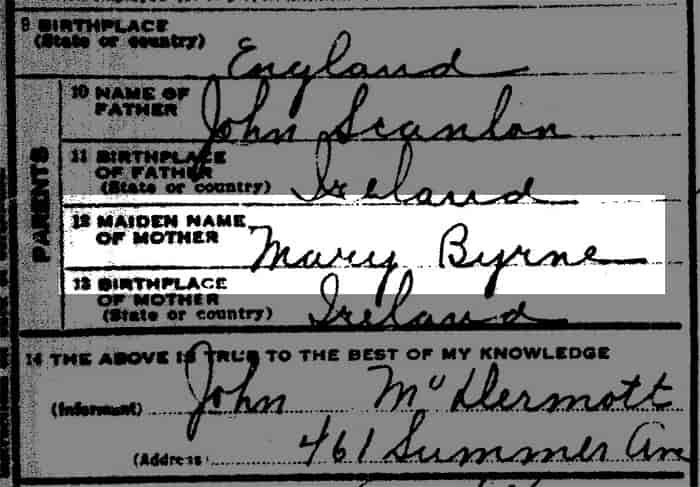 9 BIRTHPLACE
(State or country) England
PARENTS
10 NAME OF
FATHER John Scanlon
11 BIRTHPLACE
OF FATHER
(State or country) Ireland
12 MAIDEN NAME
OF MOTHER Mary Byrne
13 BIRTHPLACE
OF MOTHER
(State or country) Ireland
14 THE ABOVE IS TRUE TO THE BEST OF MY KNOWLEDGE
(Informant) John McDermott
(Address) 461 Summer Ave